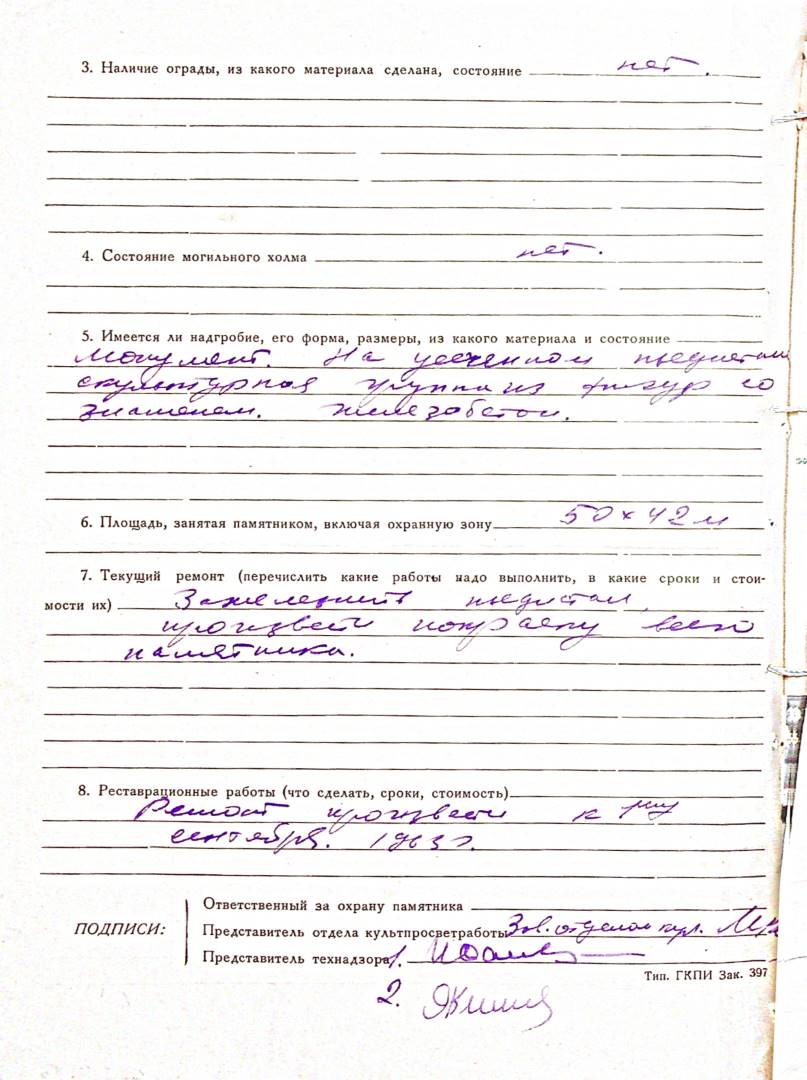 3. Наличие ограды, из какого материала сделана, состояние нет.
4. Состояние могильного холма нет.
5. Имеется ли надгробие, его форма, размеры, из какого материала и состояние
Монумент. На усеченном пьедестале
скульптурная группа из фигур со
знаменем. Железобетон.
6. Площадь, занятая памятником, включая охранную зону 50 × 42 м
7. Текущий ремонт (перечислить какие работы надо выполнить, в какие сроки и стои-
мости их) пьедестал,
произвести покраску всего
памятника.
8. Реставрационные работы (что сделать, сроки, стоимость)
Ремонт произвести к
сентября. 1963 г.
Ответственный за охрану памятника
ПОДПИСИ: Представитель отдела культпросветработы Зав. отделом
Представитель технадзора 1.
Тип. ГКПИ Зак. 397
2.